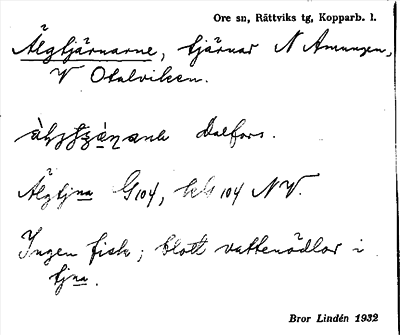 Ore sn, Rättviks tg, Kopparb. l.
Älgtjärnarne, tjärnar N Amungen,
V Otalviken.
Dalfors.
Älgtjna G104, 104 NV.
Ingen fisk; blott vattenödlor i
tjna.
Bror Lindén 1932